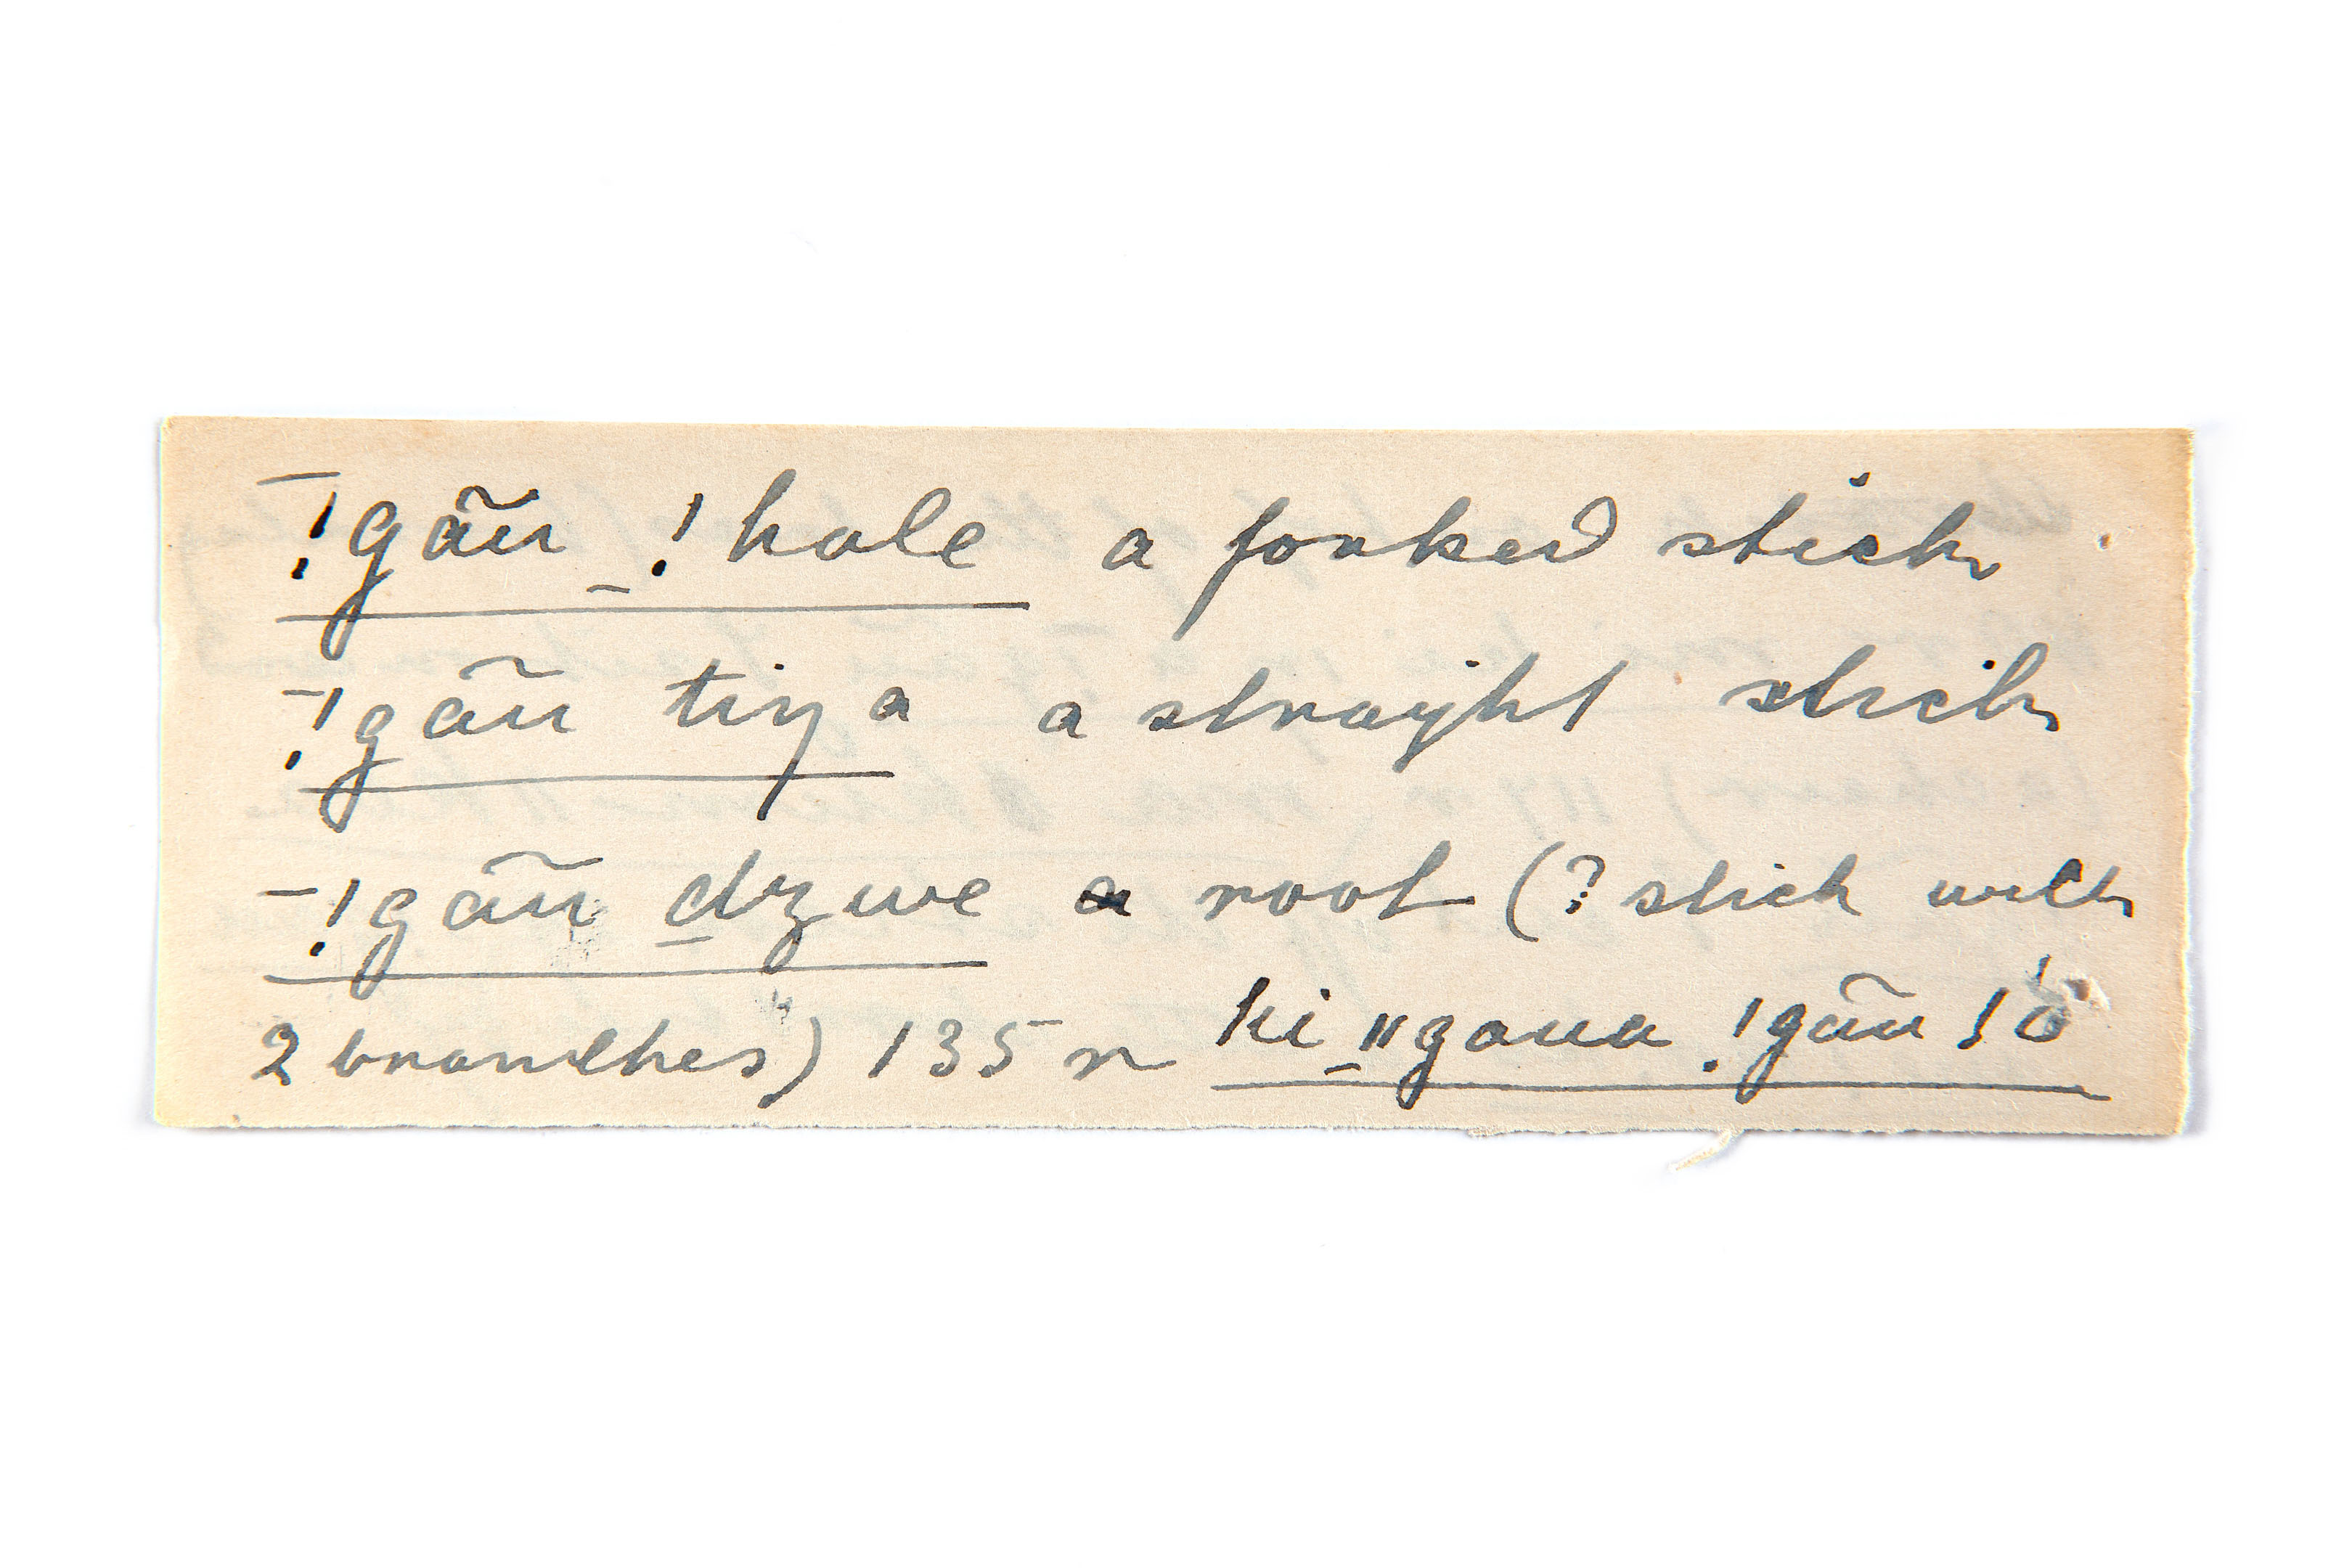 ¯!gãũ _!hale a forked stick
¯!gãũ tiya a straight stick
¯!gãũ dzwe a root (? stick with
2 branches) 135 r ki _ǁgaua !gãũ !ó